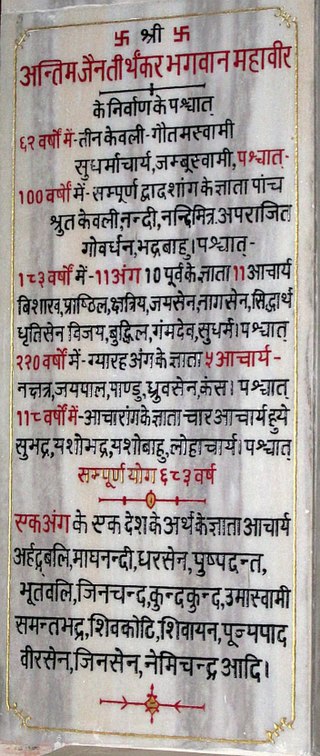 卐 श्री 卐
अन्तिम जैन तीर्थंकर भगवान महावीर
के निर्वाण के पश्चात्
६२ वर्षों में - तीन केवली - गौतमस्वामी
सुधर्माचार्य, जम्बूस्वामी, पश्चात् -
100 वर्षों में - सम्पूर्ण द्वादशांग के ज्ञाता पांच
श्रुत केवली, नन्दी, नन्दिमित्र, अपराजित
गोवर्धन, भद्रबाहु। पश्चात् -
१८३ वर्षों में - 11 अंग 10 पूर्व के ज्ञाता 11 आचार्य
बिशारव, प्राष्ठिल, क्षत्रिय, जयसेन, नागसेन, सिद्वार्थ
धृतिसेन विजय, बुद्विल, गंमदेव, सुधर्म। पश्चात्
२२० वर्षों में - ग्यारह अंग के ज्ञाता ५ आचार्य -
नक्षत्र, जयपाल, पाण्डु, ध्रुवसेन, कंस। पश्चात्
11८ वर्षों में - आचारांग के ज्ञाता चार आचार्य हुये
सुभद्र, यशोभद्र, यशोबाहु, लोहाचार्य। पश्चात्
सम्पूर्ण योग ६८३ वर्ष
एक अंग के एक देश के अर्थ के ज्ञाता आचार्य
अर्हद्बलि, माघनन्दी, धरसेन, पुष्पदन्त,
भूतवलि, जिनचन्द, कुन्दकुन्द, उमास्वामी
समन्तभद्र, शिवकोटि, शिवायन, पूज्यपाद
वीरसेन, जिनसेन, नेमिचन्द्र आदि।